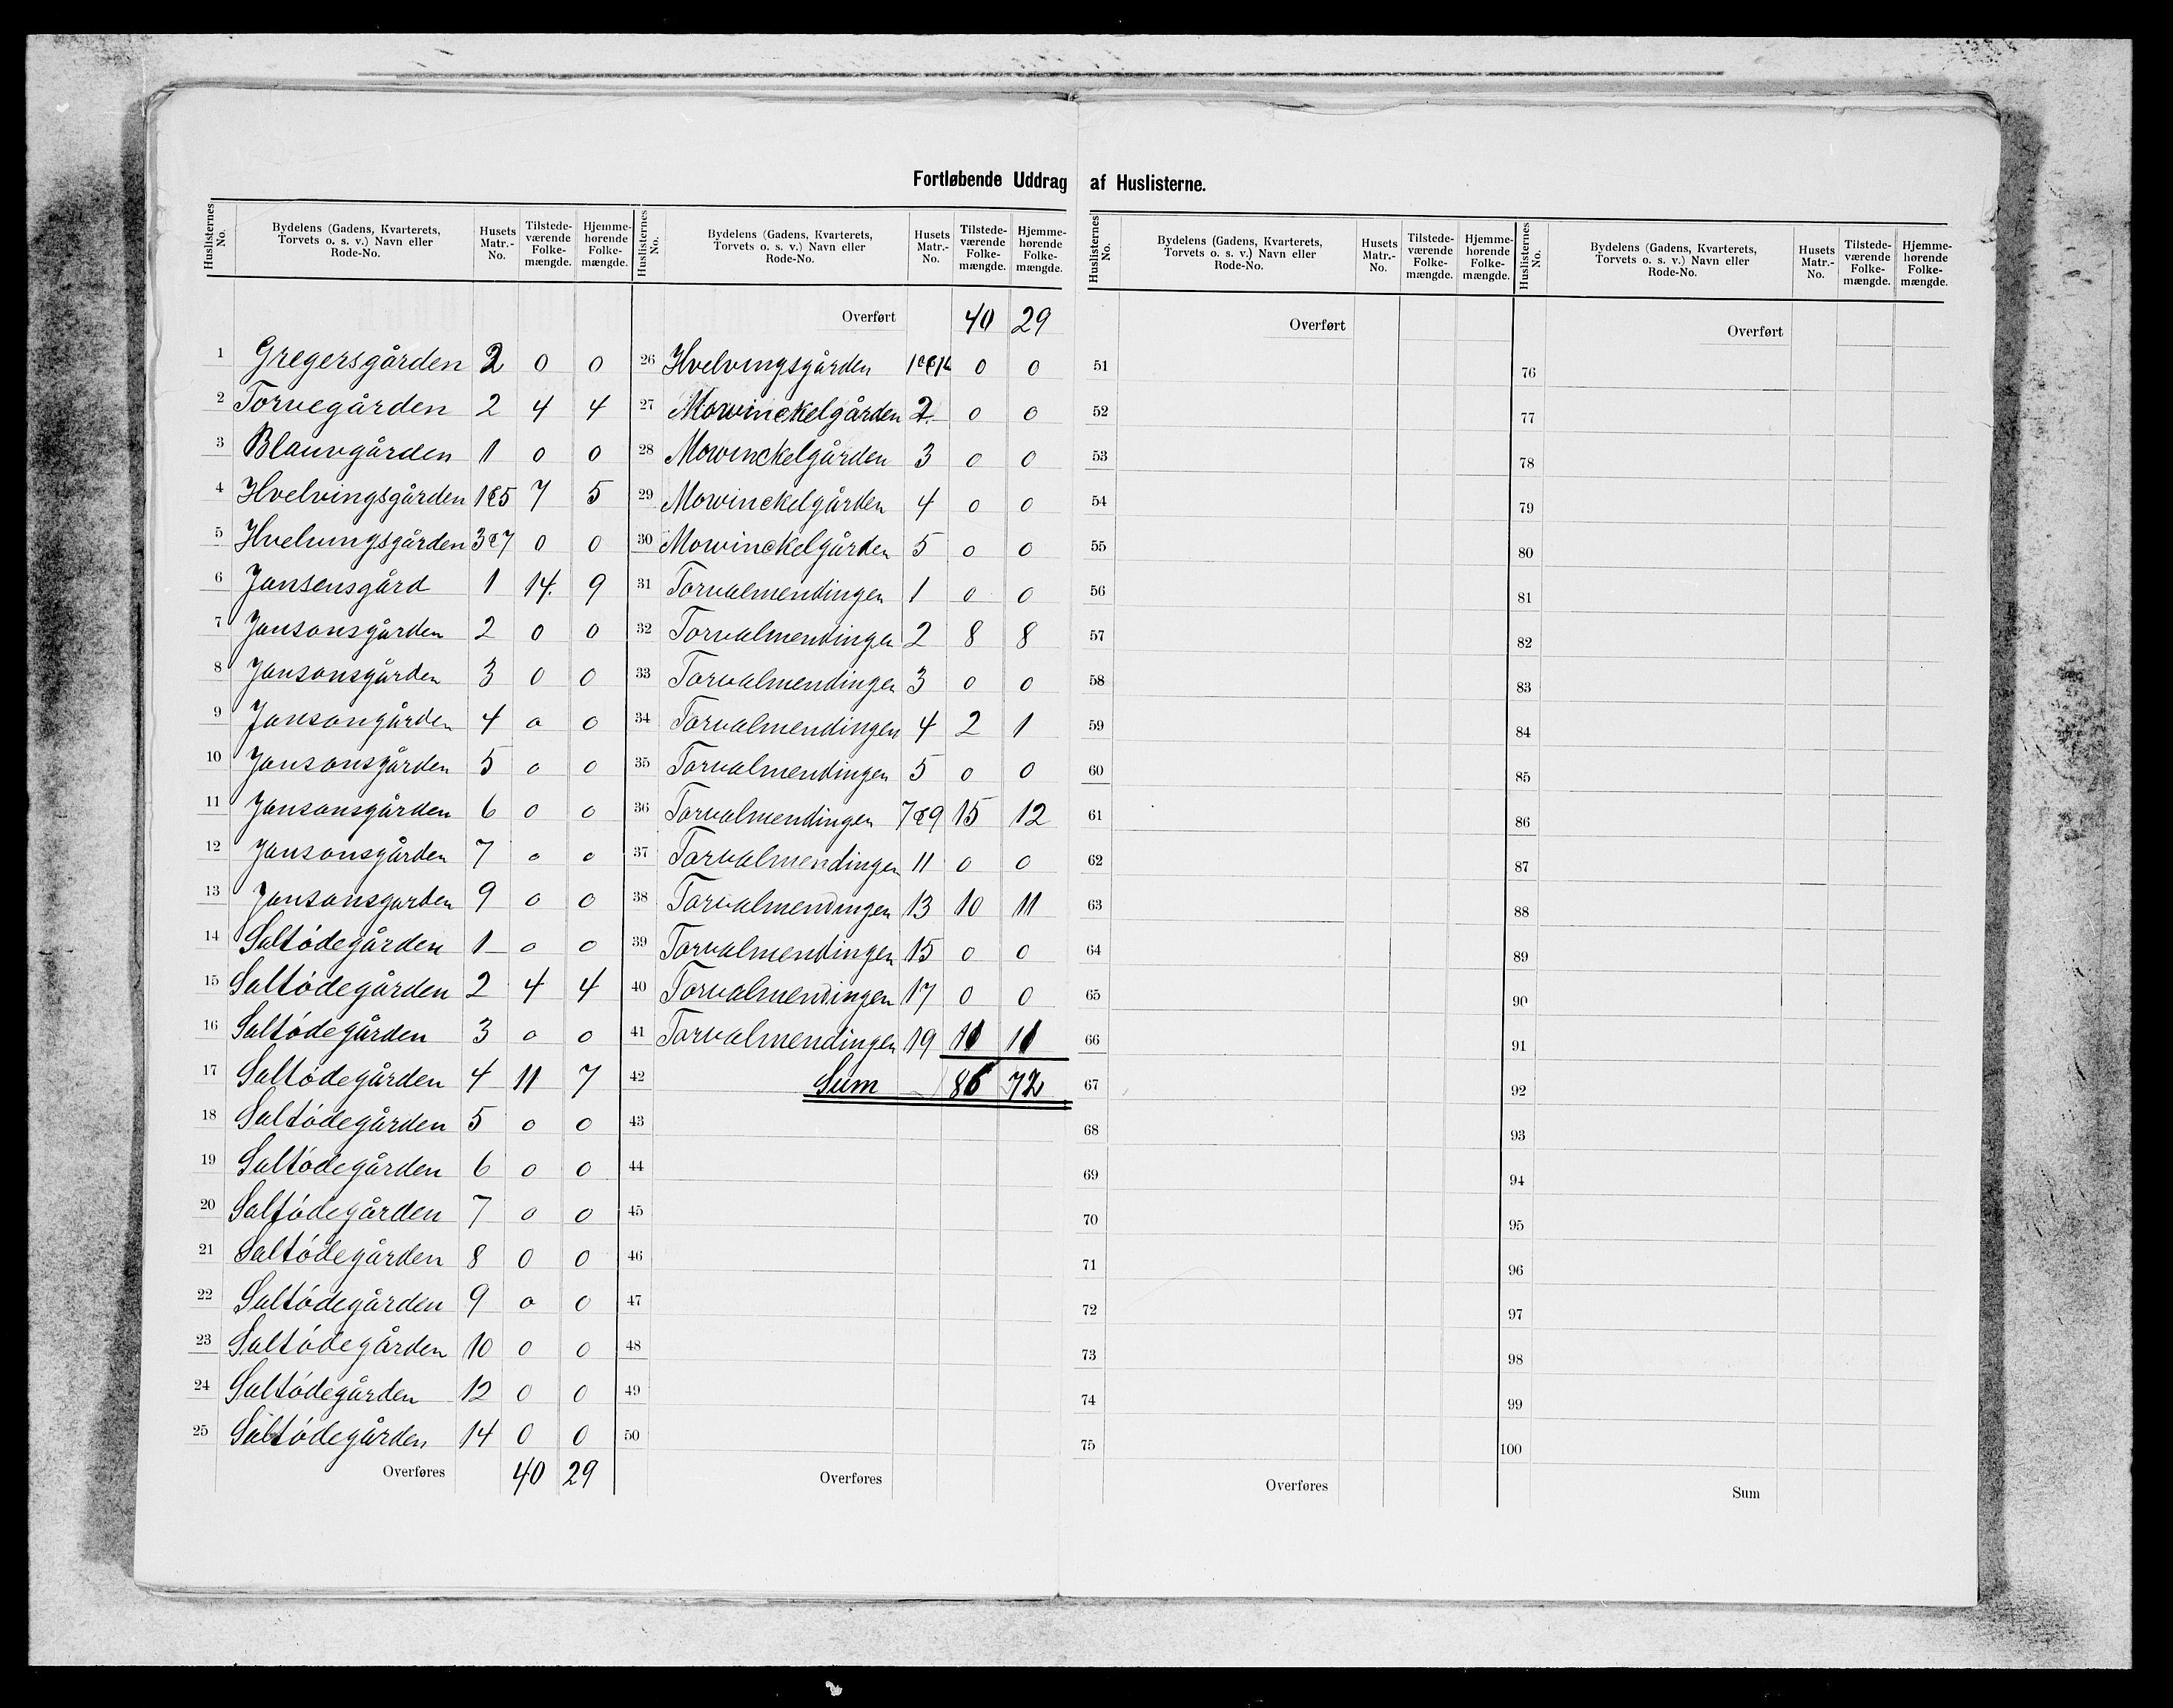 Fortløbende Uddrag af Huslisterne.
Huslisternes No. Bydelens (Gadens, Kvarterets, Torvets o. s. v.) Navn eller Rode-No. Husets Matr.-No. Tilstede-værende Folke-mængde. Hjemme-hørende Folke-mængde.
1 Gregersgården 2 0 0
2 Torvegården 2 4 4
3 Blauvgården 1 0 0
4 Hvelvingsgården 1&5 7 5
5 Hvelvingsgården 3&7 0 0
6 Jansensgård 1 14. 9
7 Jansonsgården 2 0 0
8 Jansonsgården 3 0 0
9 Jansongården 4 0 0
10 Jansonsgården 5 0 0
11 Jansonsgården 6 0 0
12 Jansonsgården 7 0 0
13 Jansonsgarden 9 0 0
14 Saltódegården 1 0 0
15 Saltódegården 2 4 4
16 Saltódegården 3 0 0
17 Saltódegården 4 11 7
18 Saltódegården 5 0 0
19 Saltódegården 6 0 0
20 Saltódegården 7 0 0
21 Saltódegården 8 0 0
22 Saltódegården 9 0 0
23 Saltódegården 10 0 0
24 Saltódegården 12 0 0
25 Saltódegården 14 0 0
Overføres 40 29
Huslisternes No. Bydelens (Gadens, Kvarterets, Torvets o. s. v.) Navn eller Rode-No. Husets Matr.-No. Tilstede-værende Folke-mængde. Hjemme-hørende Folke-mængde.
Overført 40 29
26 Hvelvingsgården 0 0
27 Mowinckelgården 2 0 0
28 Mowinckelgården 3 0 0
29 Mowinckelgården 4 0 0
30 Mowinckelgården 5 0 0
31 Torvalmendingen 1 0 0
32 Torvalmendingen 2 8 8
33 Torvalmendingen 3 0 0
34 Torvalmendingen 4 2 1
35 Torvalmendingen 5 0 0
36 Torvalmendingen 7&9 15 12
37 Torvalmendingen 11 0 0
38 Torvalmendingen 13 10 11
39 Torvalmendingen 15 0 0
40 Torvalmendingen 17 0 0
41 Torvalmendingen 19 11 11
42 Sum 86 72
43
44
45
46
47
48
49
50
Overføres
Huslisternes No. Bydelens (Gadens, Kvarterets, Torvets o. s. v.) Navn eller Rode-No. Husets Matr.-No. Tilstede-værende Folke-mængde. Hjemme-hørende Folke-mængde.
Overført
51
52
53
54
55
56
57
58
59
60
61
62
63
64
65
66
67
68
69
70
71
72
73
74
75
Overføres
Huslisternes No. Bydelens (Gadens, Kvarterets, Torvets o. s. v.) Navn eller Rode-No. Husets Matr.-No. Tilstede-værende Folke-mængde. Hjemme-hørende Folke-mængde.
Overført
76
77
78
79
80
81
82
83
84
85
86
87
88
89
90
91
92
93
94
95
96
97
98
99
100
Sum